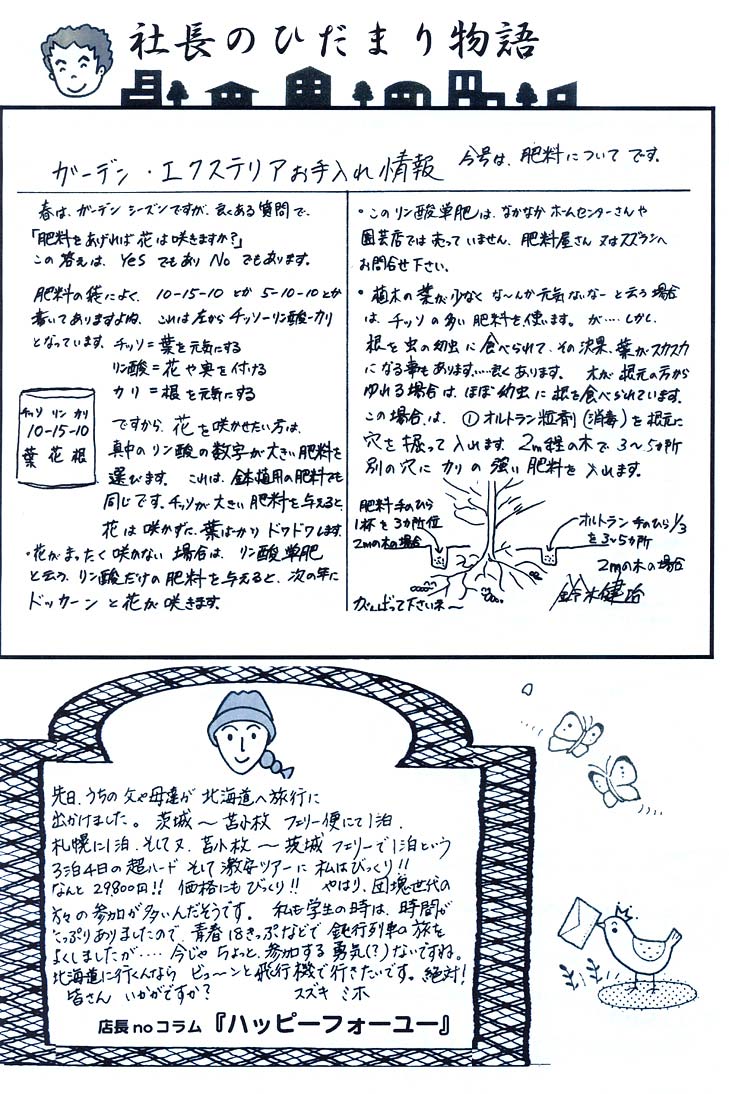 社長のひだまり物語
ガーデン・エクステリアお手入れ情報 今号は、肥料について です。
春は、ガーデン シーズンですが、良くある質問で、
「肥料をあげれば花は咲きますか?」
この答えは、Yes でもあり No でもあります。
肥料の袋によく、10-15-10 とか 5-10-10 とか
書いてありますよね、これは左から チッソ-リン酸-カリ
となっています。チッソ=葉を元気にする
リン酸=花や実を付ける
カリ=根を元気にする
チッソ リン カリ
10-15-10
葉 花 根
ですから、花を咲かせたい方は、
真中のリン酸の数字が大きい肥料を
選びます。これは、鉢植用の肥料でも
同じです。チッソが大きい肥料を与えると、
花は咲かずに、葉ばっかり ドワドワします
・花がまったく咲かない場合は、リン酸単肥
と云う、リン酸だけの肥料を与えると、次の年に
ドッカーンと花が咲きます。
・このリン酸単肥は、なかなか ホームセンターさんや
園芸店では売っていません、肥料屋さん 又はスズランへ
お問合せ下さい。
・植木の葉が少なく な〜んか元気ないなー と云う場合
は、チッソの多い肥料を使います。が…しかし、
根を虫の幼虫に食べられて、その結果、葉がスカスカ
になる事もあります……良くあります。木が根元の方から
ゆれる場合は、ほぼ幼虫に根を食べられています。
この場合は、①オルトラン粒剤(消毒)を根元に
穴を掘って入れます。2m程の木で 3〜5ヵ所
別の穴に カリの強い肥料を入れます。
肥料 手のひら
1杯を3ヵ所位
2mの木の場合
オルトラン 手のひら1/3
を3〜5ヵ所
2mの木の場合
がんばって下さいネ〜
鈴木健治
先日、うちの父や母達が 北海道へ旅行に
出かけました。茨城〜苫小牧 フェリー便にて1泊、
札幌に1泊、そして又、苫小牧〜茨城 フェリーで1泊という
3泊4日の超ハード そして激安ツアーに 私はびっくり!!
なんと 29,800円!! 価格にもびっくり!! やはり、団塊世代の
方々の参加が多いんだそうです。私も学生の時は、時間が
たっぷりありましたので、青春18きっぷなどで 鈍行列車の旅を
よくしましたが…‥今じゃ ちょっと、参加する勇気(?)ないですね。
北海道に行くんなら ビューンと飛行機で行きたいです。絶対!
皆さん いかがですか? スズキ ミホ
店長noコラム『ハッピーフォーユー』